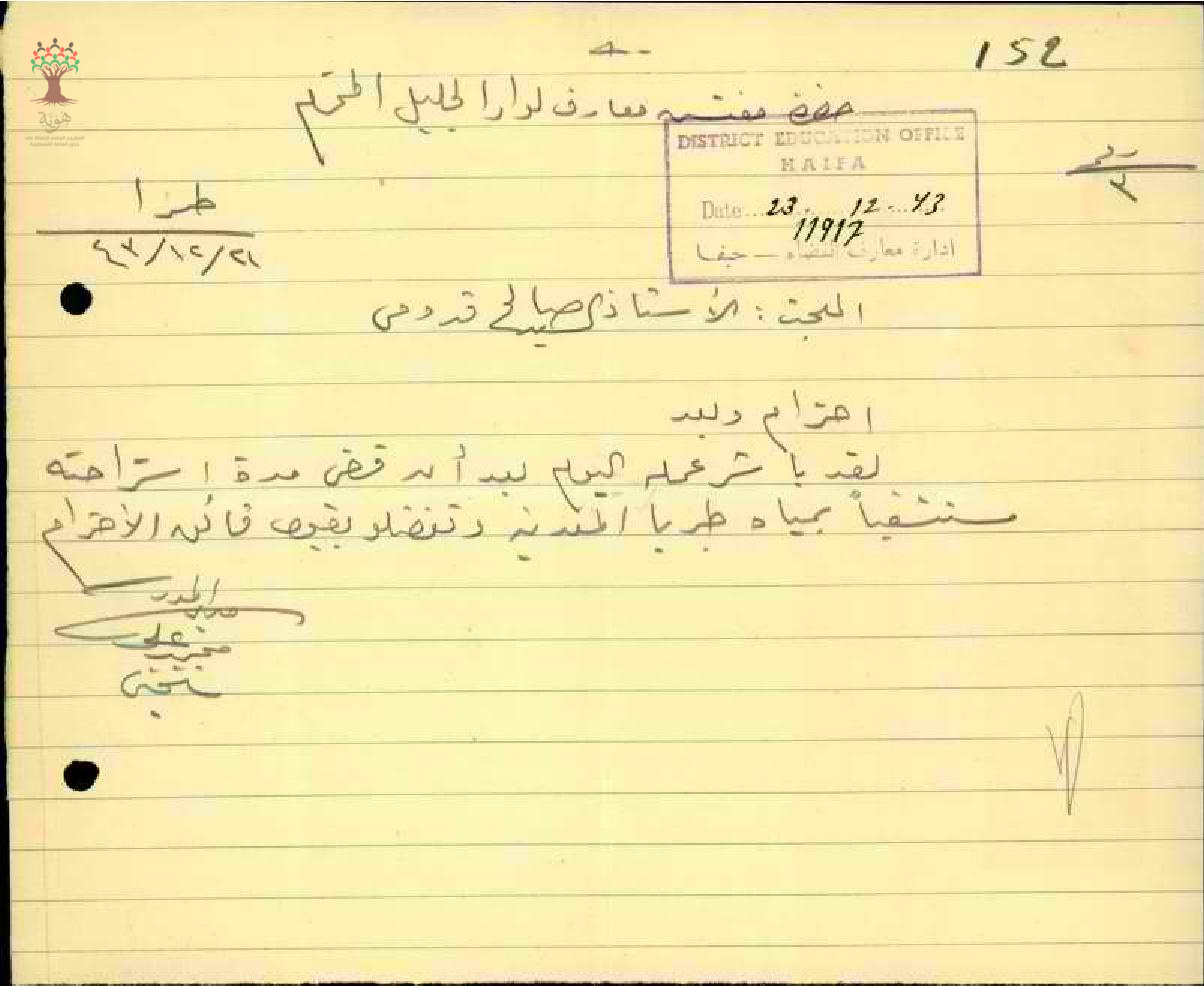 152
حضرة مفتش معارف لواء الجليل المحترم
DISTRICT EDUCATION OFFICE
HAIFA
Date... 23. 12. 43
11917
ادارة معارف القضاء – حيفا
رقم
٣
٤٣/١٢/٢١
المبحث: الأستاذ صالح قدومي
احترام وبعد
لقد باشر عمله اليوم بعد أن قضى مدة استراحته
مستشفياً بمياه طبريا المعدنية وتفضلو بقبول فائق الاحترام
المدير
علي
هوية